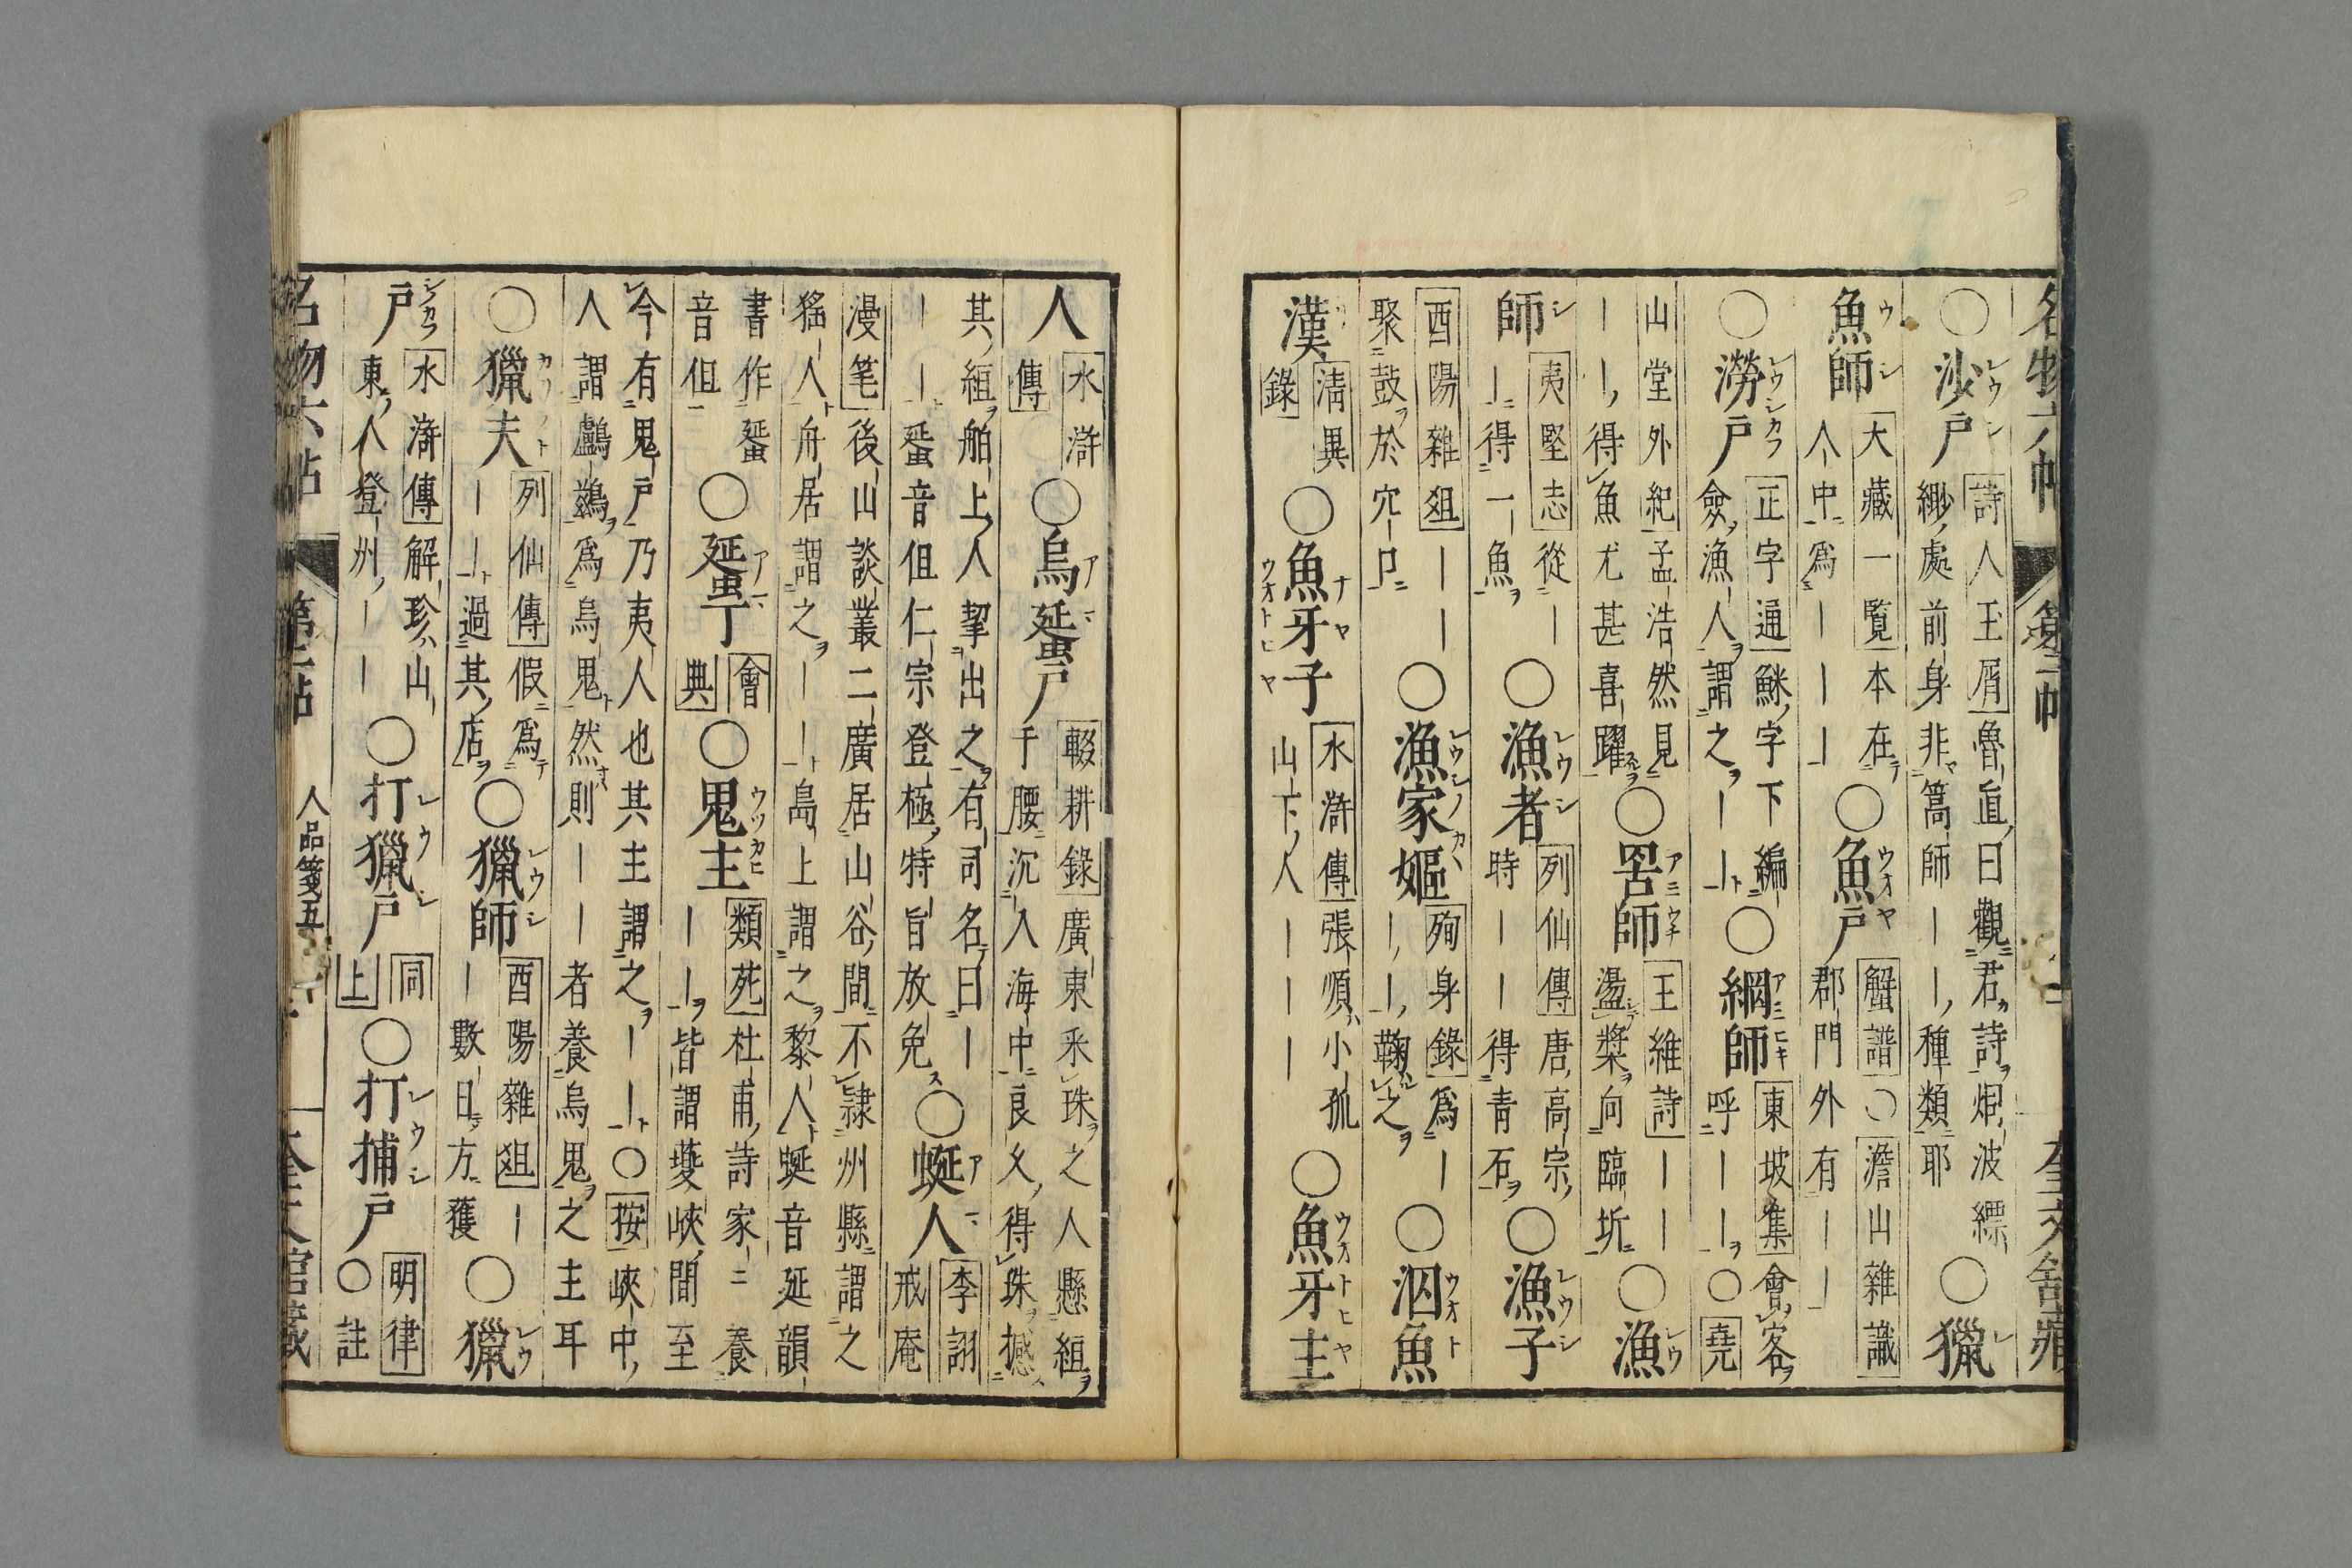 名物六帖 第二帖 奎文舘藏
○沙戸 詩人玉屑魯直曰觀君詩炬波縹
緲處前身非篙師——種類耶 ○獵
魚師 大藏一覧本在
人中爲———
○魚戸 蟹譜○澹山雜識
郡門外有——
○澇戸 正字通鮴字下編
僉漁人謂之——
○網師 東坡集會客
呼——○堯
山堂外紀孟浩然見
——得魚尤甚喜躍
○罟師 王維詩——
盪槳向臨圻 ○漁
師 夷堅志從—
—得一魚
○漁者 列仙傳唐高宗
時——得青石 ○漁子
酉陽雜俎——
聚鼓於穴口
○漁家嫗 殉身錄爲—
——鞠之 ○泅魚
漢 淸異
錄
○魚牙子 水滸傳張順小孤
山下人——— ○魚牙主
人 水滸
傳
○烏蜑戸 輟耕錄廣東釆珠之人懸絙
于腰沉入海中良久得珠撼
其絙舶上人挈出之有司名曰—
——蜑音伹仁宗登極特旨放免
○蜒人 李詡
戒庵
漫笔後山談叢二廣居山谷間不隷州縣謂之
猺人舟居謂之——島上謂之黎人蜒音延韻
書作蜑
音伹
○蜑丁 會
典
○鬼主 類苑杜甫詩家二養
——皆謂夔峽間至
今有鬼戸乃夷人也其主謂之——○按峽中
人謂鸕鷀爲烏鬼然則——者養烏鬼之主耳
○獵夫 列仙傳假爲
——過其店
○獵師 酉陽雜俎—
—數日方獲 ○獵
戸 水滸傳解珍山
東人登州——
○打獵戸 同
上
○打捕戸 明律
○註
名物六帖 第二帖 人品箋五 奎文舘藏